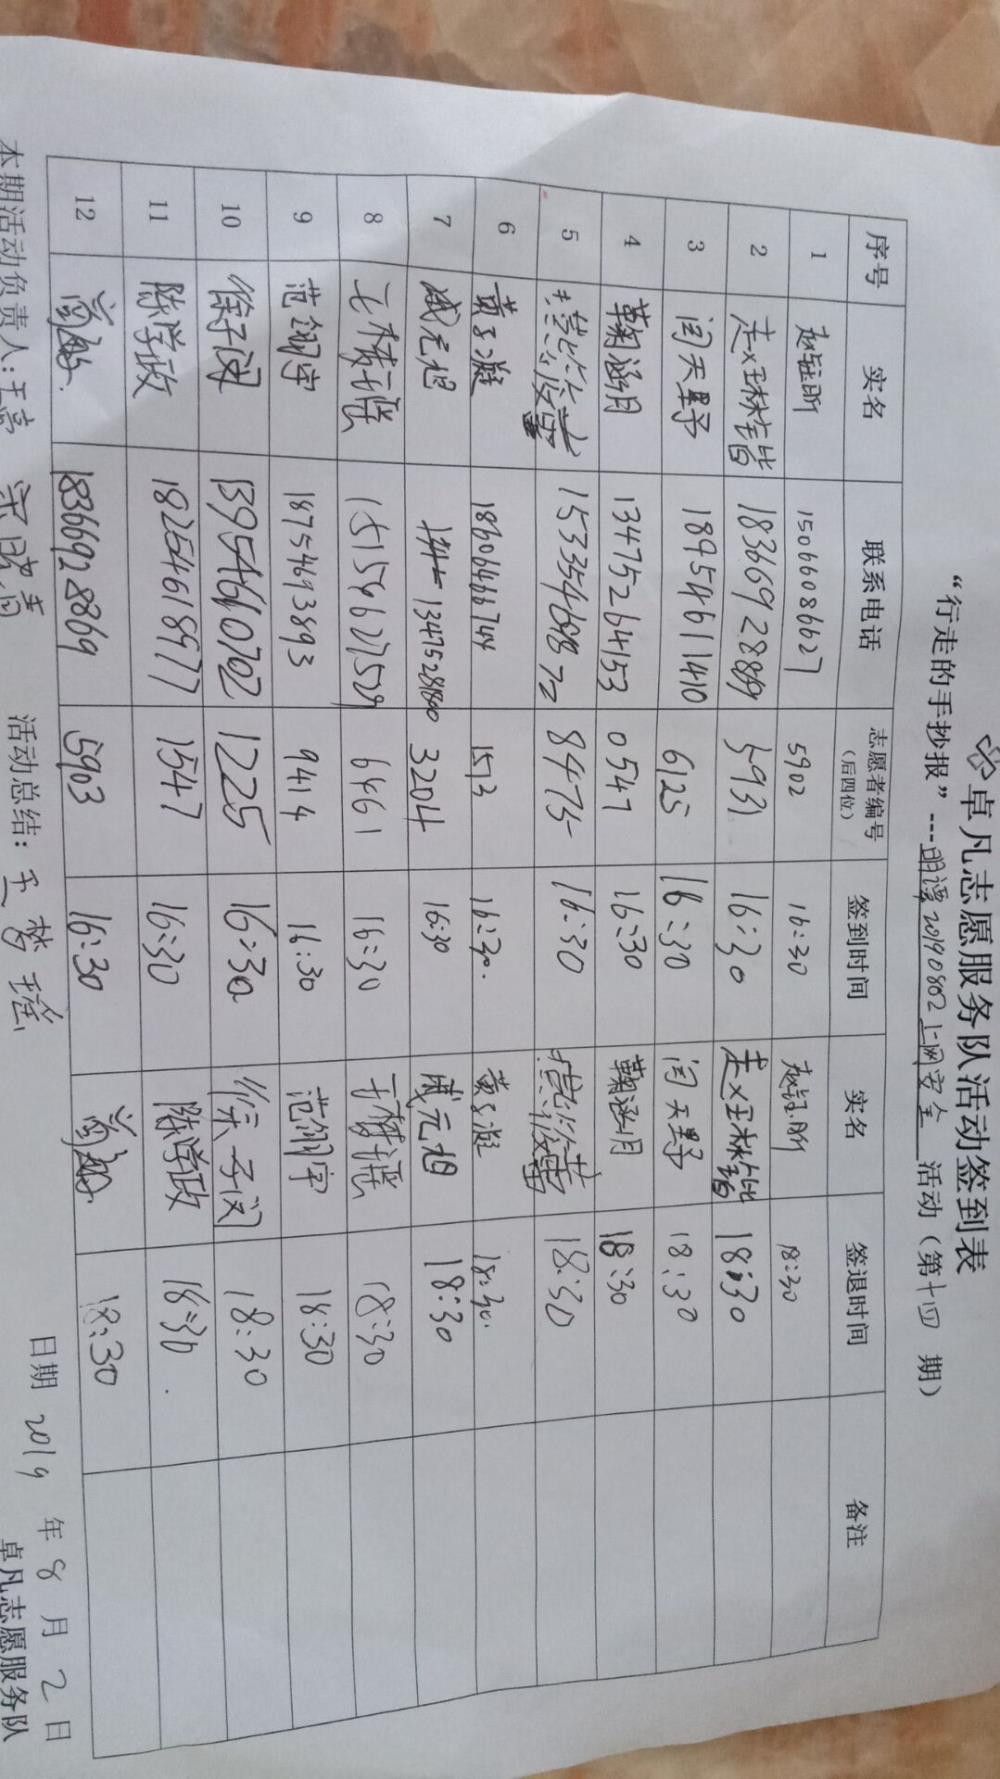 卓凡志愿服务队活动签到表
“行走的手抄报”---明潭20190802上网安全 活动（第十四 期）
序号 实名 联系电话 志愿者编号（后四位） 签到时间 实名 签退时间 备注
1 赵钰昕 15066086627 5902 16:30 赵钰昕 18:30
2 18366928889 5931 16:30 18:30
3 闫天野 18954611410 6125 16:30 闫天野 18:30
4 鞠涵月 13475264153 0547 16:30 鞠涵月 18:30
5 15335469872 8475 16:30 18:30
6 黄子凝 18606466744 1572 16:30. 黄子凝 18:30.
7 成元旭 3204 16:30 成元旭 18:30
8 15159627529 6461 16:30 18:30
9 范翎宇 18754693893 9414 16:30 范翎宇 18:30
10 徐子涵 13954660702 1225 16:30 18:30
11 陈学政 18254618977 1547 16:30 陈学政 18:30
12 18366928869 5903 16:30 18:30
本期活动负责人:王嘉 宋晓青 活动总结: 王梦瑶 日期 2019 年 8 月 2 日
卓凡志愿服务队